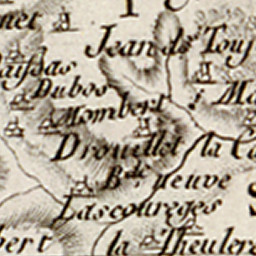 net
Jean de Touj
Dubos
Mombert
Ma
Drouillet
la Ca
Bde. neuve
Lascoureges
S
bert
la Theulere